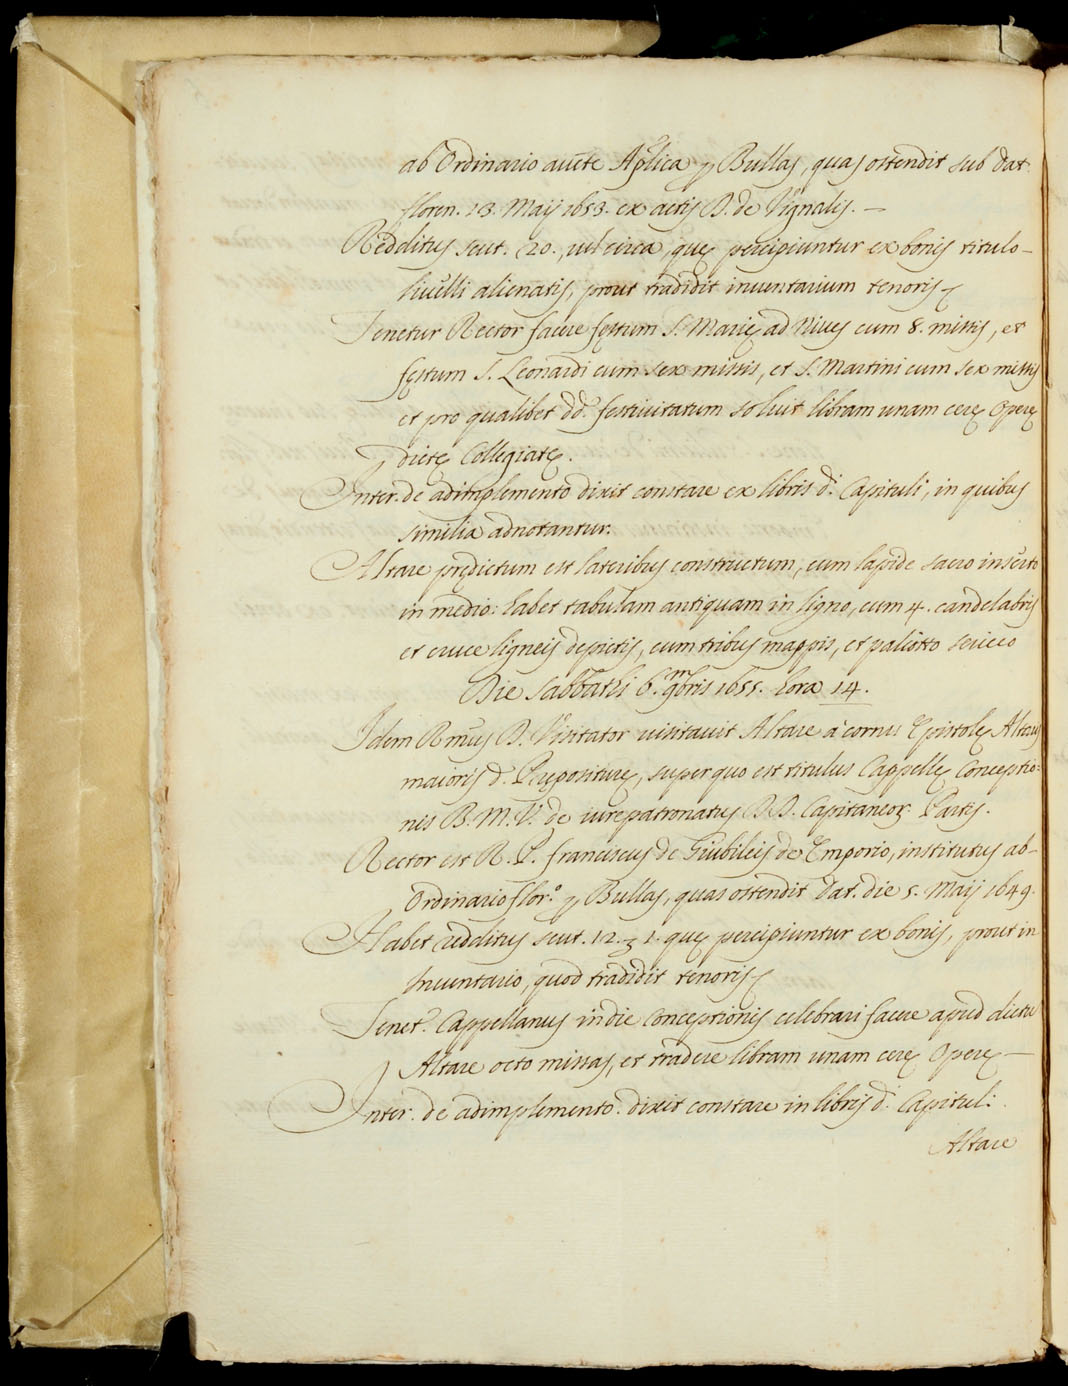 ab Ordinario aucte Aplica p Bullas, quas ostendit sub Dat.
floren. 13. Maij 1653. ex actis D. de Vignalis. —
Redditus scut. 20., vel circa, quę percipiuntur ex bonis titulo
livelli alienatis, prout tradidit inventarium tenoris
Tenetur Rector facere festum S. Marię ad Nives cum 8. missis, et
festum S. Leonardi cum sex missis, et S. Martini cum sex missis
et pro qualibet dd. festivitatum solvit libram unam cerę Operę
dictę Collegiatę.
Inter. de adimplemento dixit constare ex libris d. Capituli, in quibus
similia adnotantur.
Altare prędictum est lateribus constructum, cum lapide sacro inserto
in medio: habet tabulam antiquam in ligno, cum 4. candelabris
et cruce ligneis depictis, cum tribus mappis, et paliotto sericeo
Die Sabbathi 6. mgbris 1655. hora 14.
Idem Rmus D. Visitator visitavit Altare à cornu Epistolę Altaris
maioris d. Pręposituрę, super quo est titulus Cappellę Conceptio-
nis B. M. V. de iurepatronatus DD. Capitaneor. Partis.
Rector est R. P. franciscus de Giubileis de Emporio, institutus ab
Ordinario flor.o p Bullas, quas ostendit Dat. die 5. Maij 1649.
Habet redditus scut. 12. 3 1. quę percipiuntur ex bonis, prout in
Inventario, quod tradidit tenoris
Tenet.r Cappellanus in die Conceptionis celebrari facere apud dictu
Altare octo missas, et tradere libram unam cerę Operę —
Inter. de adimplemento. dixit constare in libris d. Capituli
Altare